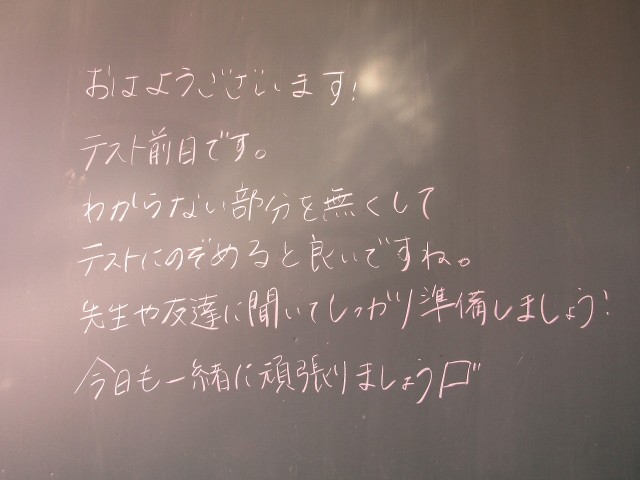 おはようございます!
テスト前日です。
わからない部分を無くして
テストにのぞめると良いですね。
先生や友達に聞いてしっかり準備しましょう!
今日も一緒に頑張りましょう